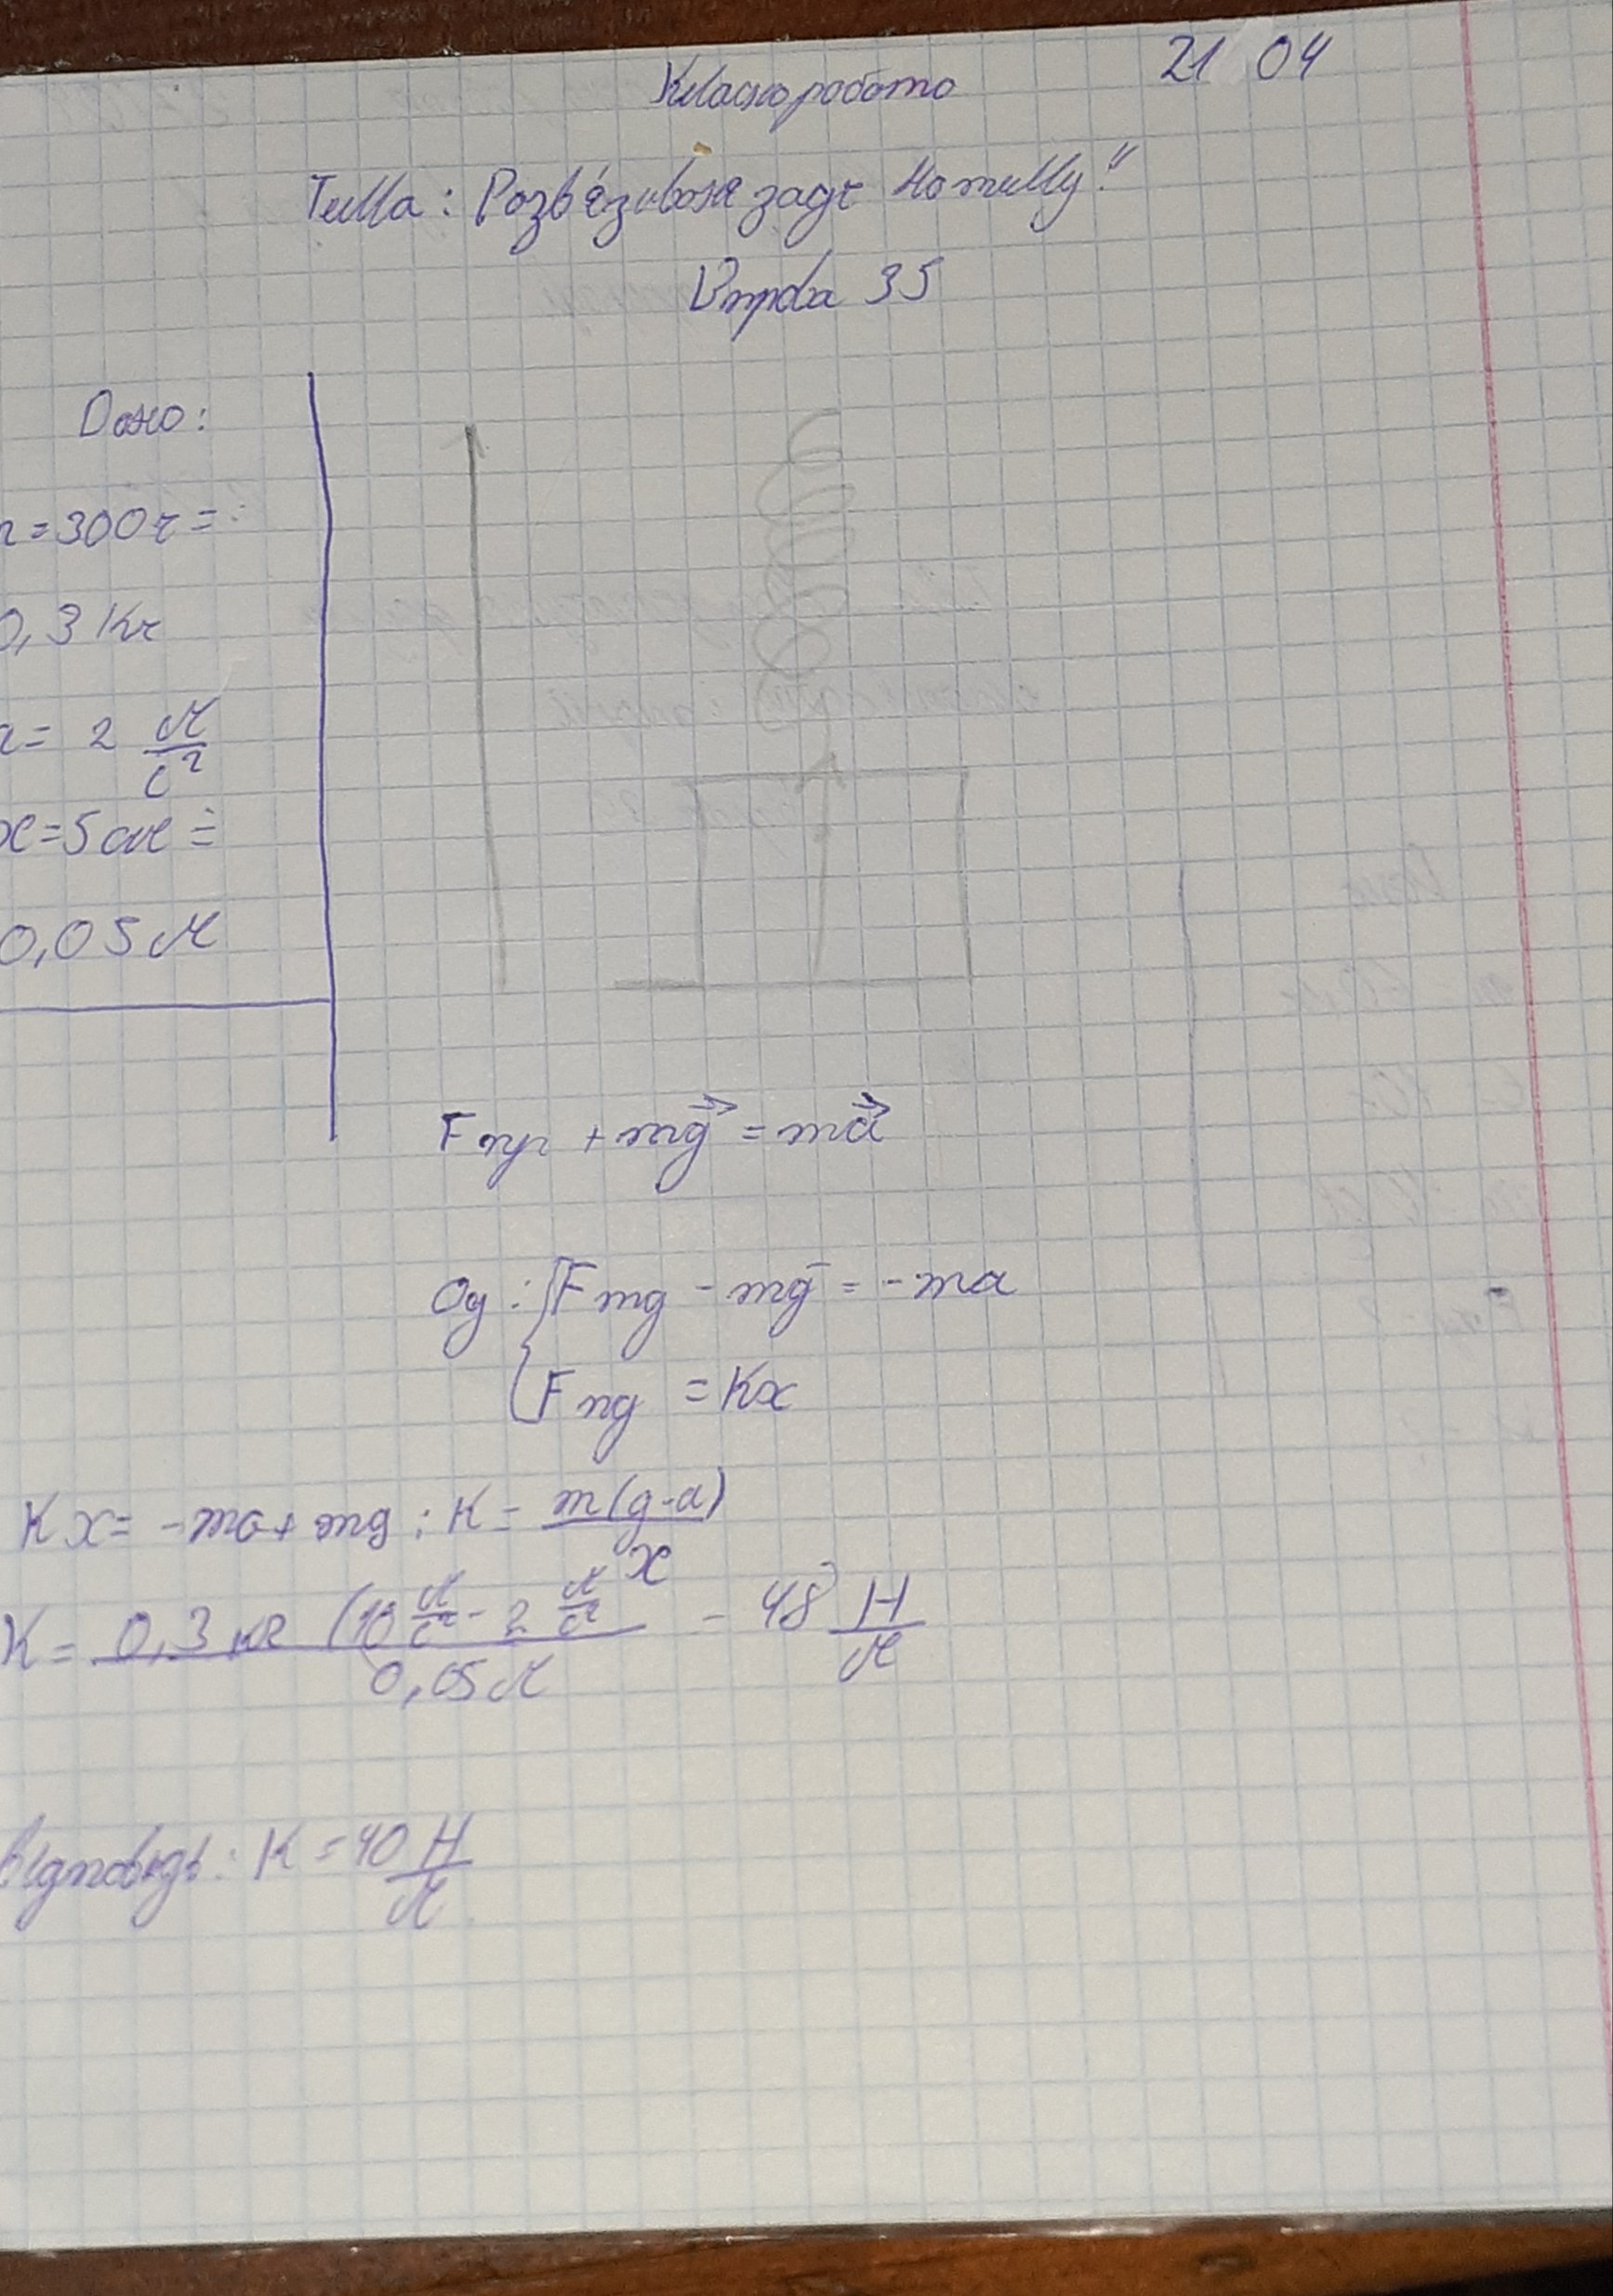 21 04
Класна робота
Тема: Розв'язування задач на тему:"
Вправа 35
Дано:
m=300г=
0,3 кг
a= 2 м/с²
x=5см=
0,05м
Fпр + mg = ma
Oy: Fпр - mg = -ma
Fпр = Kx
Kx= -ma+mg; K= m(g-a)/x
K= 0,3 кг (10 м/с² - 2 м/с²/0,05м = 48 Н/м
Відповідь: K=40 Н/м